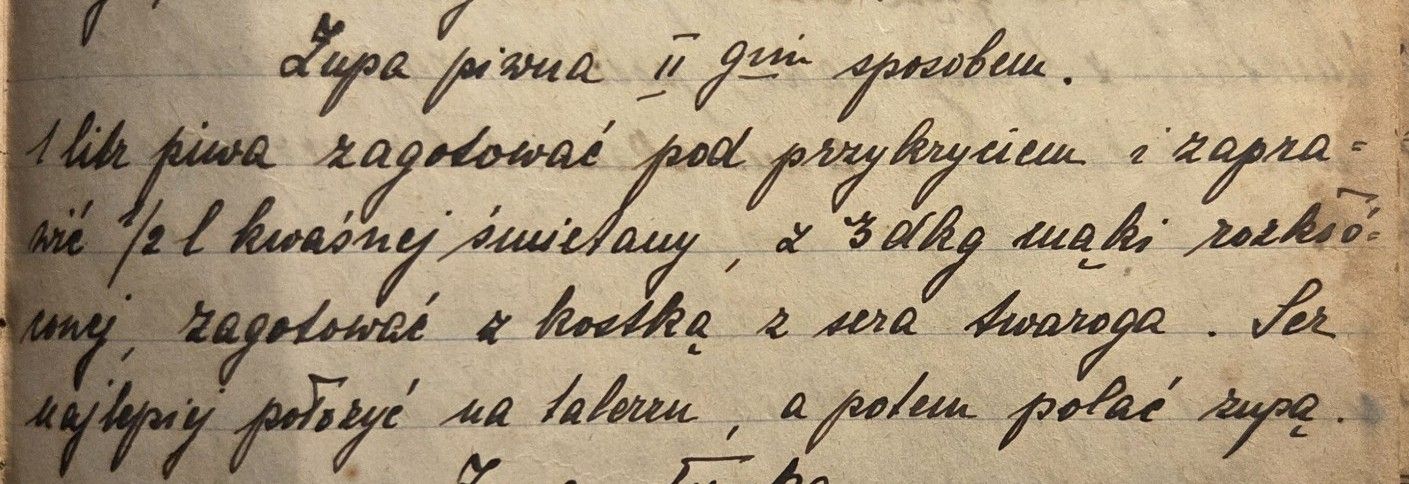 Zupa piwna II gim sposobem.
1 litr piwa zagotować pod przykryciem i zapra=
wić 1/2 l kwaśnej śmietany, z 3 dkg mąki rozkłó=
conej, zagotować z kostką z sera twaroga. Ser
najlepiej położyć na talerzu, a potem polać zupą.